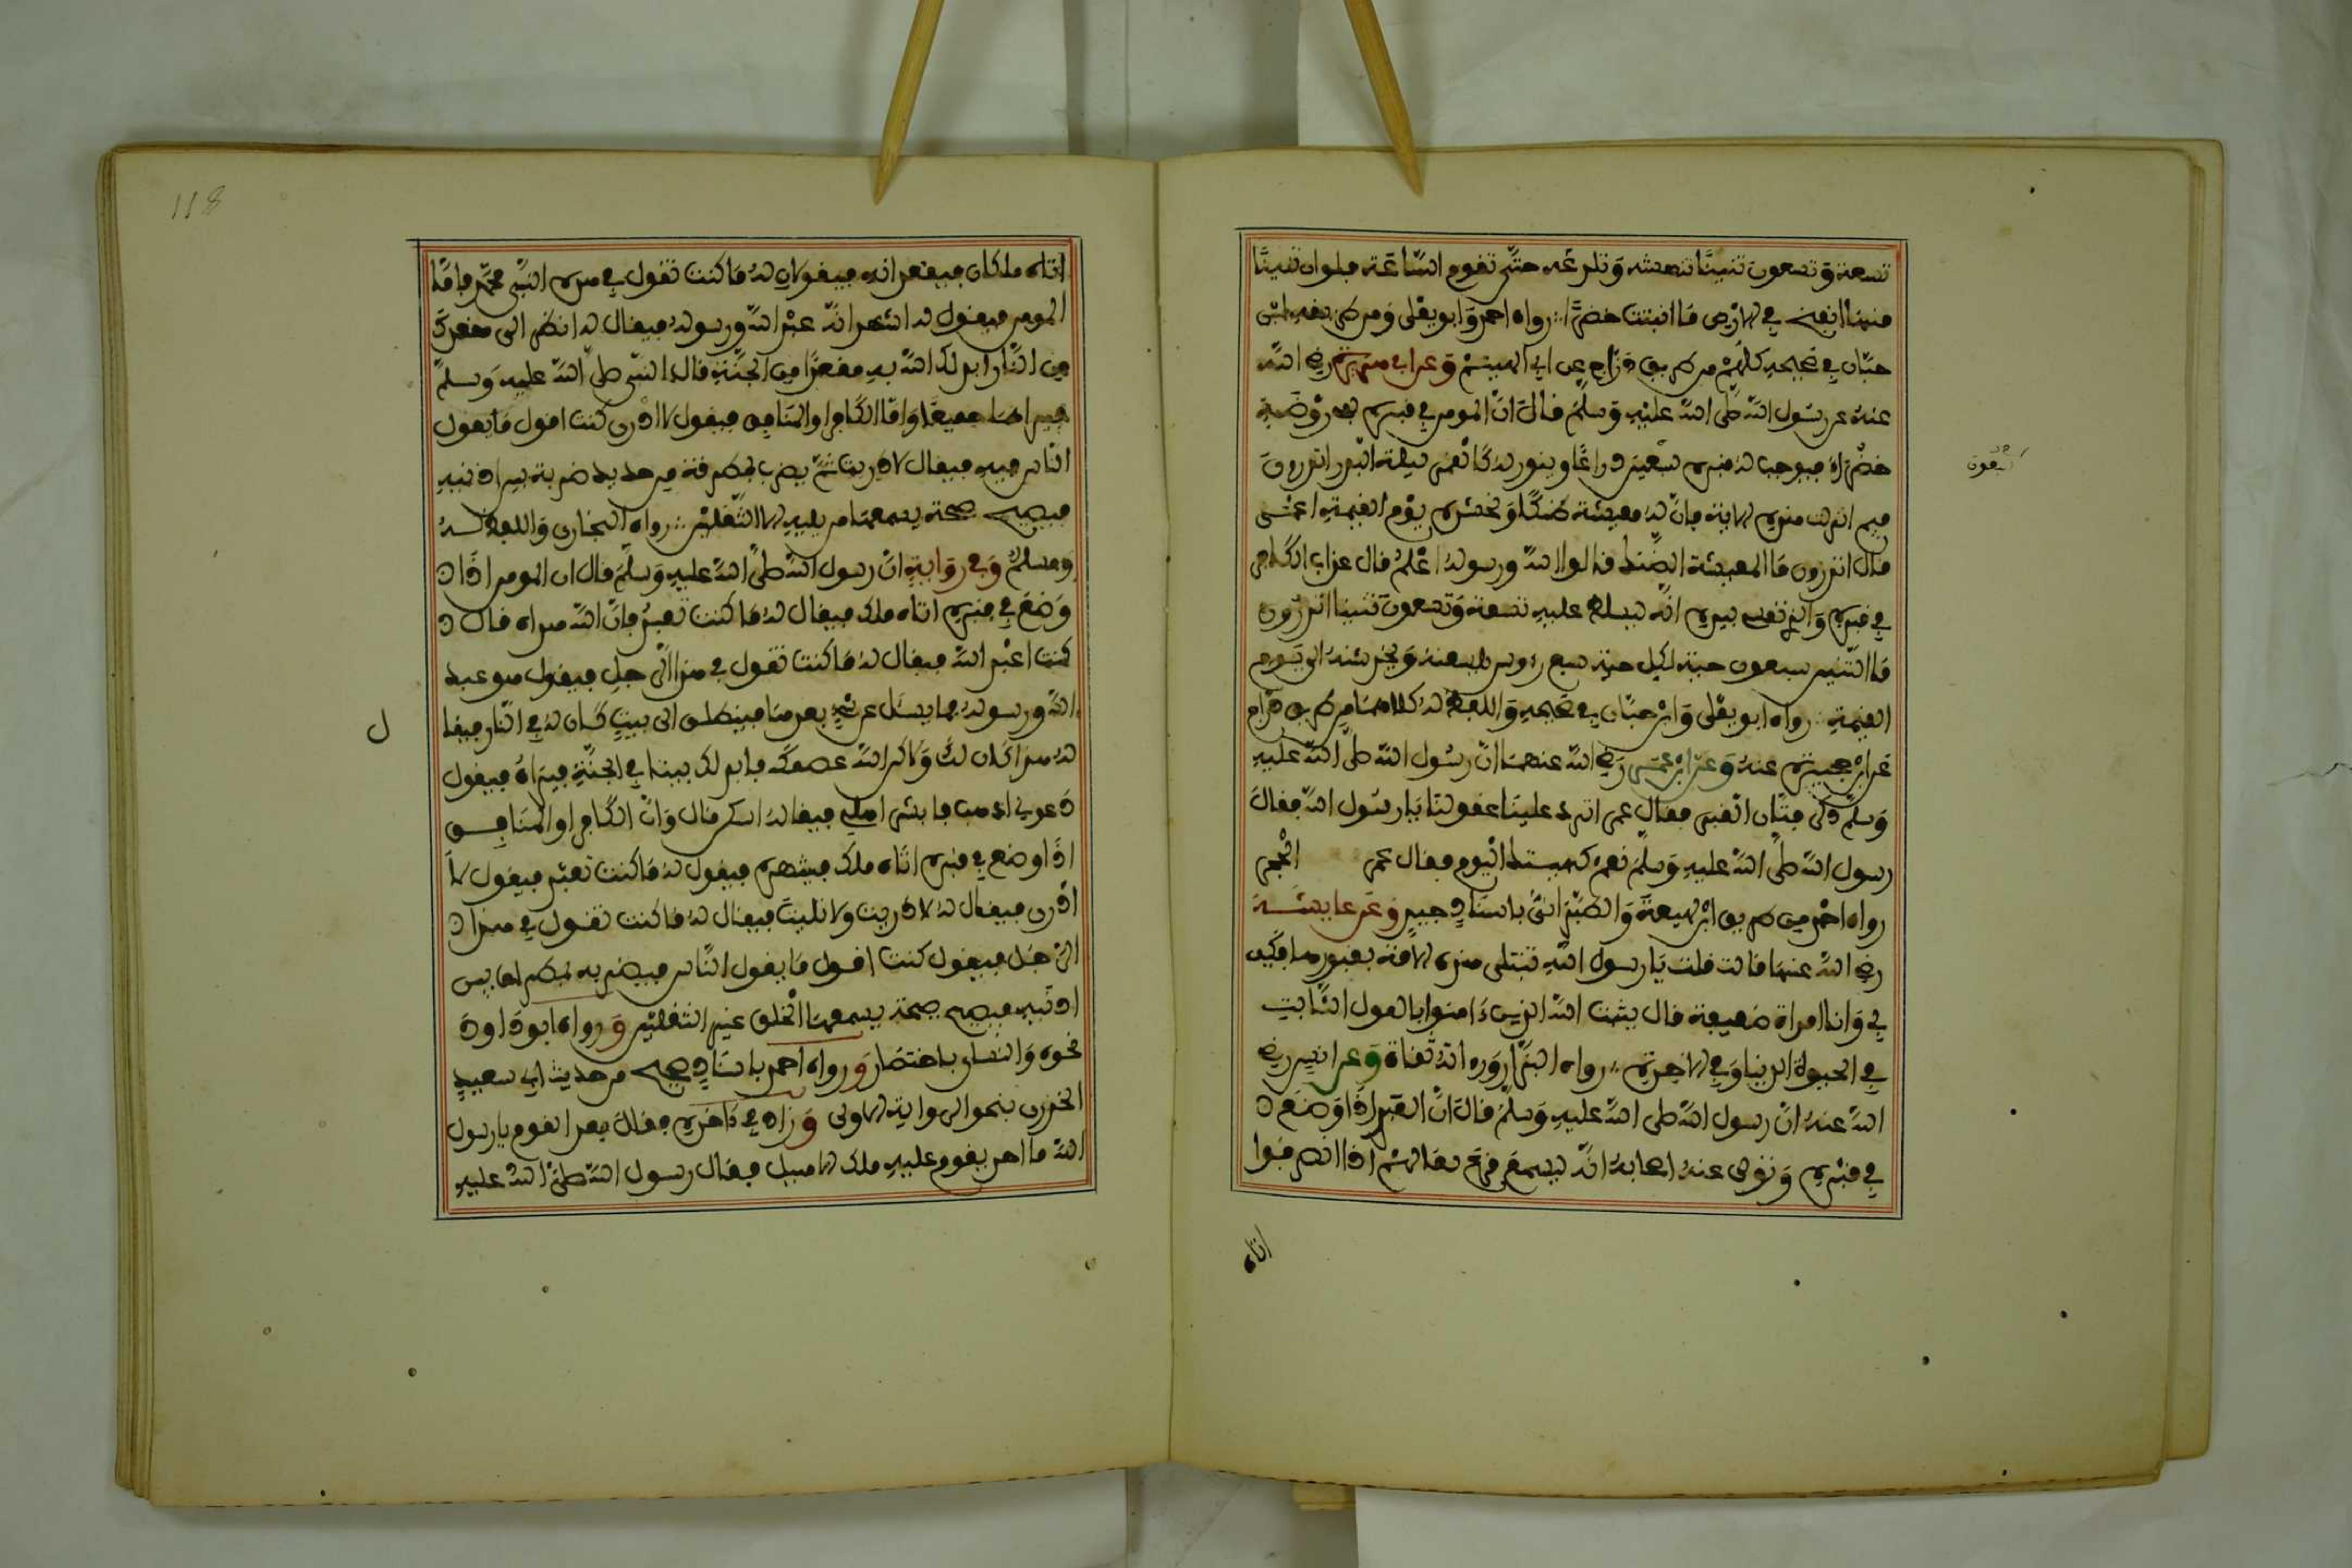 تسعة وتسعون تنينا تنهشه وتلدغه حتى تقوم الساعة فلو ان تنينا
منها نفخ في الارض ما انبتت خضرا رواه احمد وابو يعلى ومن طريقه ابن
حبان في صحيحه كلهم من طريق دراج عن ابي الهيثم وعن ابي هريرة رضي الله
عنه عن رسول الله صلى الله عليه وسلم قال ان المومن في قبره لفي روضة
خضراء فيرحب له قبره سبعين ذراعا وينور له كالقمر ليلة البدر اتدرون
فيم انزلت هذه الاية فان له معيشة ضنكا ونحشره يوم القيمة اعمى
قال اتدرون ما المعيشة الضنك قالوا الله ورسوله اعلم قال عذاب الكافر
في قبره والذي نفسي بيده انه ليسلط عليه تسعة وتسعون تنينا اتدرون
ما التنين سبعون حية لكل حية سبع رءوس يلسعنه ويخدشنه الى يوم
القيمة رواه ابو يعلى وابن حبان في صحيحه واللفظ له كلاهما من طريق دراج
عن ابن حجيرة عنه وعن ابن عمر رضي الله عنهما ان رسول الله صلى الله عليه
وسلم ذكر فتان القبر فقال عمر اترد علينا عقولنا يا رسول الله فقال
رسول الله صلى الله عليه وسلم نعم كهيئتك اليوم فقال عمر الحجر
رواه احمد من طريق ابن لهيعة والطبراني باسناد جيد وعن عايشة
رضي الله عنها قالت قلت يا رسول الله تبتلى هذه الامة بقبورها فكيف
بي وانا امراة ضعيفة قال يثبت الله الذين ءامنوا بالقول الثابت
في الحيوة الدنيا وفي الاخرة رواه البزار ورواته ثقاة وعن انس رضي
الله عنه ان رسول الله صلى الله عليه وسلم قال ان العبد اذا وضع
في قبره وتولى عنه اصحابه انه ليسمع قرع نعالهم اذا انصرفوا
اتاه
اتاه ملكان فيقعدانه فيقولان له ما كنت تقول في هذا النبي محمد فاما
المومن فيقول له اشهد انه عبد الله ورسوله فيقال له انظر الى مقعدك
من النار ابدلك الله به مقعدا من الجنة قال النبي صلى الله عليه وسلم
فيراهما جميعا واما الكافر او المنافق فيقول لا ادري كنت اقول ما يقول
الناس فيه فيقال لا دريت ثم يضرب بمطرقة من حديد ضربة بين اذنيه
فيصيح صيحة يسمعها من يليه الا الثقلين رواه البخاري واللفظ له
ومسلم وفي رواية ان رسول الله صلى الله عليه وسلم قال ان المومن اذا
وضع في قبره اتاه ملك فيقال له ما كنت تعبد فان الله هداه قال
كنت اعبد الله فيقال له ما كنت تقول في هذا الرجل فيقول هو عبد
الله ورسوله فما يسئل عن شيء بعدها فينطلق الى بيت كان له في النار فيقا
ل
له هذا كان لك ولاكن الله عصمك فابدلك بيتا في الجنة فيراه فيقول
دعوني اذهب فابشر اهلي فيقال له اسكن قال وان الكافر او المنافق
اذا وضع في قبره اتاه ملك فينتهره فيقول له ما كنت تعبد فيقول لا
ادري فيقال له لا دريت ولا تليت فيقال له فما كنت تقول في هذا
الرجل فيقول كنت اقول ما يقول الناس فيضربه بمطراق بين
اذنيه فيصيح صيحة يسمعها الخلق غير الثقلين ورواه ابو داود
نحوه والنساي باختصار ورواه احمد باسناد صحيح من حديث ابي سعيد
الخدري بنحو الرواية الاولى وزاد في ءاخره فقال بعض القوم يا رسول
الله ما احد يقوم عليه ملك الا هيل فقال رسول الله صلى الله عليه
118